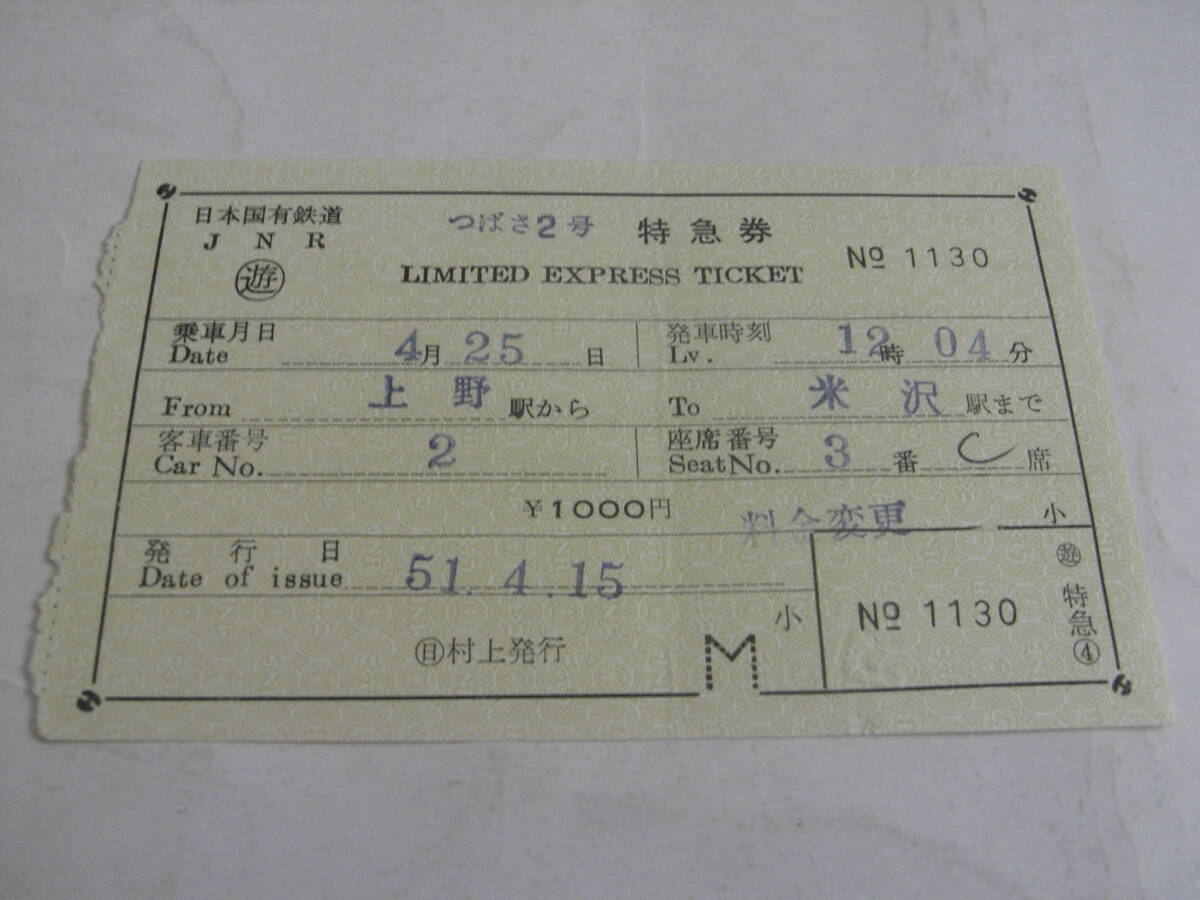 日本国有鉄道 つばさ2号 特急券
J N R
遊 LIMITED EXPRESS TICKET № 1130
乗車月日 発車時刻
Date 4月25日 Lv. 12時04分
From 上野 駅から To 米沢 駅まで
客車番号 座席番号
Car No. 2 Seat No. 3 番 C 席
¥1000円 料金変更 小
発行日
Date of issue 51.4.15
㊐村上発行 小
M
№ 1130
遊 特急④